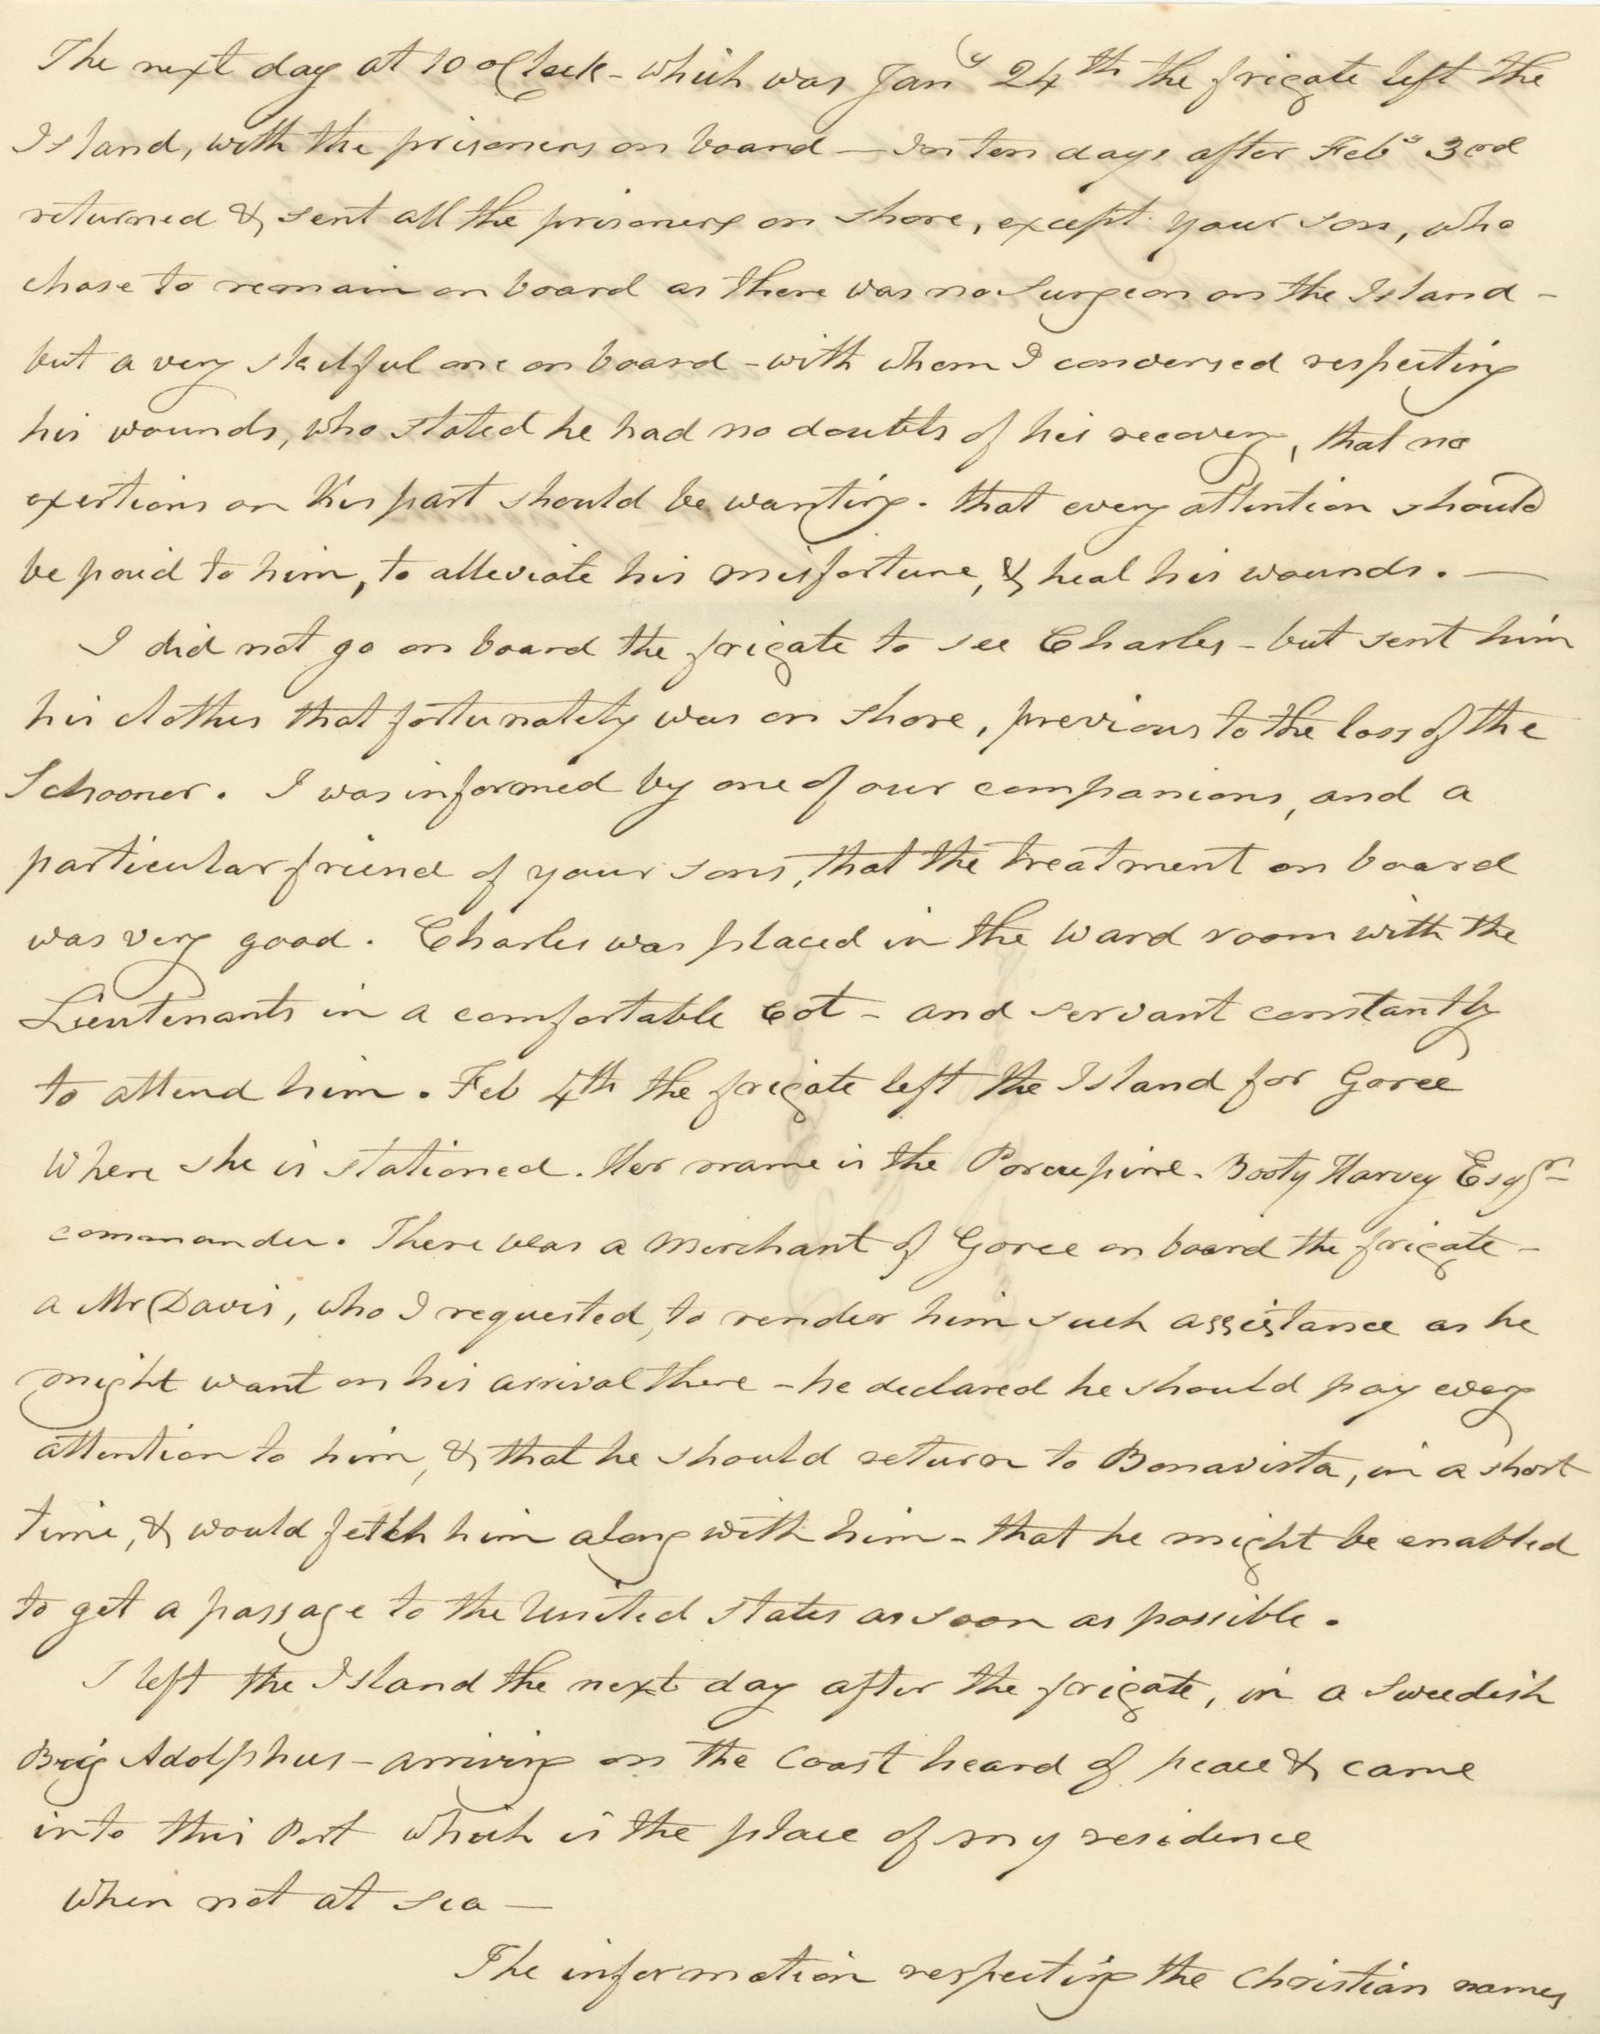 The next day at 10 oClock - which was Jany 24th the frigate left the
Island, with the prisoners on board — In ten days after Feby 3rd
returned & sent all the prisoners on shore, except your son, who
chose to remain on board as there was no Surgeon on the Island -
but a very skilful one on board - with whom I conversed respecting
his wounds, who stated he had no doubts of his recovery, that no
exertions on his part should be wanting. that every attention should
be paid to him, to alleviate his misfortune, & heal his wounds. —
I did not go on board the frigate to see Charles - but sent him
his clothes that fortunately was on shore, previous to the loss of the
Schooner. I was informed by one of our companions, and a
particular friend of your sons, that the treatment on board
was very good. Charles was placed in the ward room with the
Lieutenants in a comfortable cot - and servant constantly
to attend him. Feb 4th the frigate left the Island for Goree
Where she is stationed. Her name is the Porcupine. Booty Harvey Esqr
commander. There was a merchant of Goree on board the frigate -
a Mr Davis, who I requested, to render him such assistance as he
might want on his arrival there - he declared he should pay every
attention to him, & that he should return to Bonavista, in a short
time, & would fetch him along with him - that he might be enabled
to get a passage to the United States as soon as possible.
I left the Island the next day after the frigate, in a Swedish
Brig Adolphus - arriving on the Coast heard of peace & came
into this Port which is the place of my residence
when not at sea —
The information respecting the Christian names